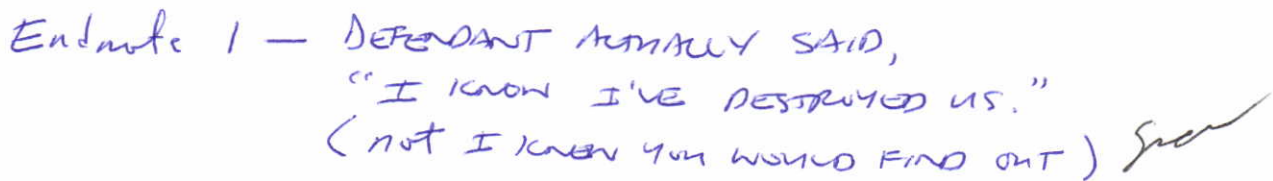 Endnote 1 — DEFENDANT ACTUALLY SAID,
"I KNOW I'VE DESTROYED US."
(not I KNEW YOU WOULD FIND OUT)